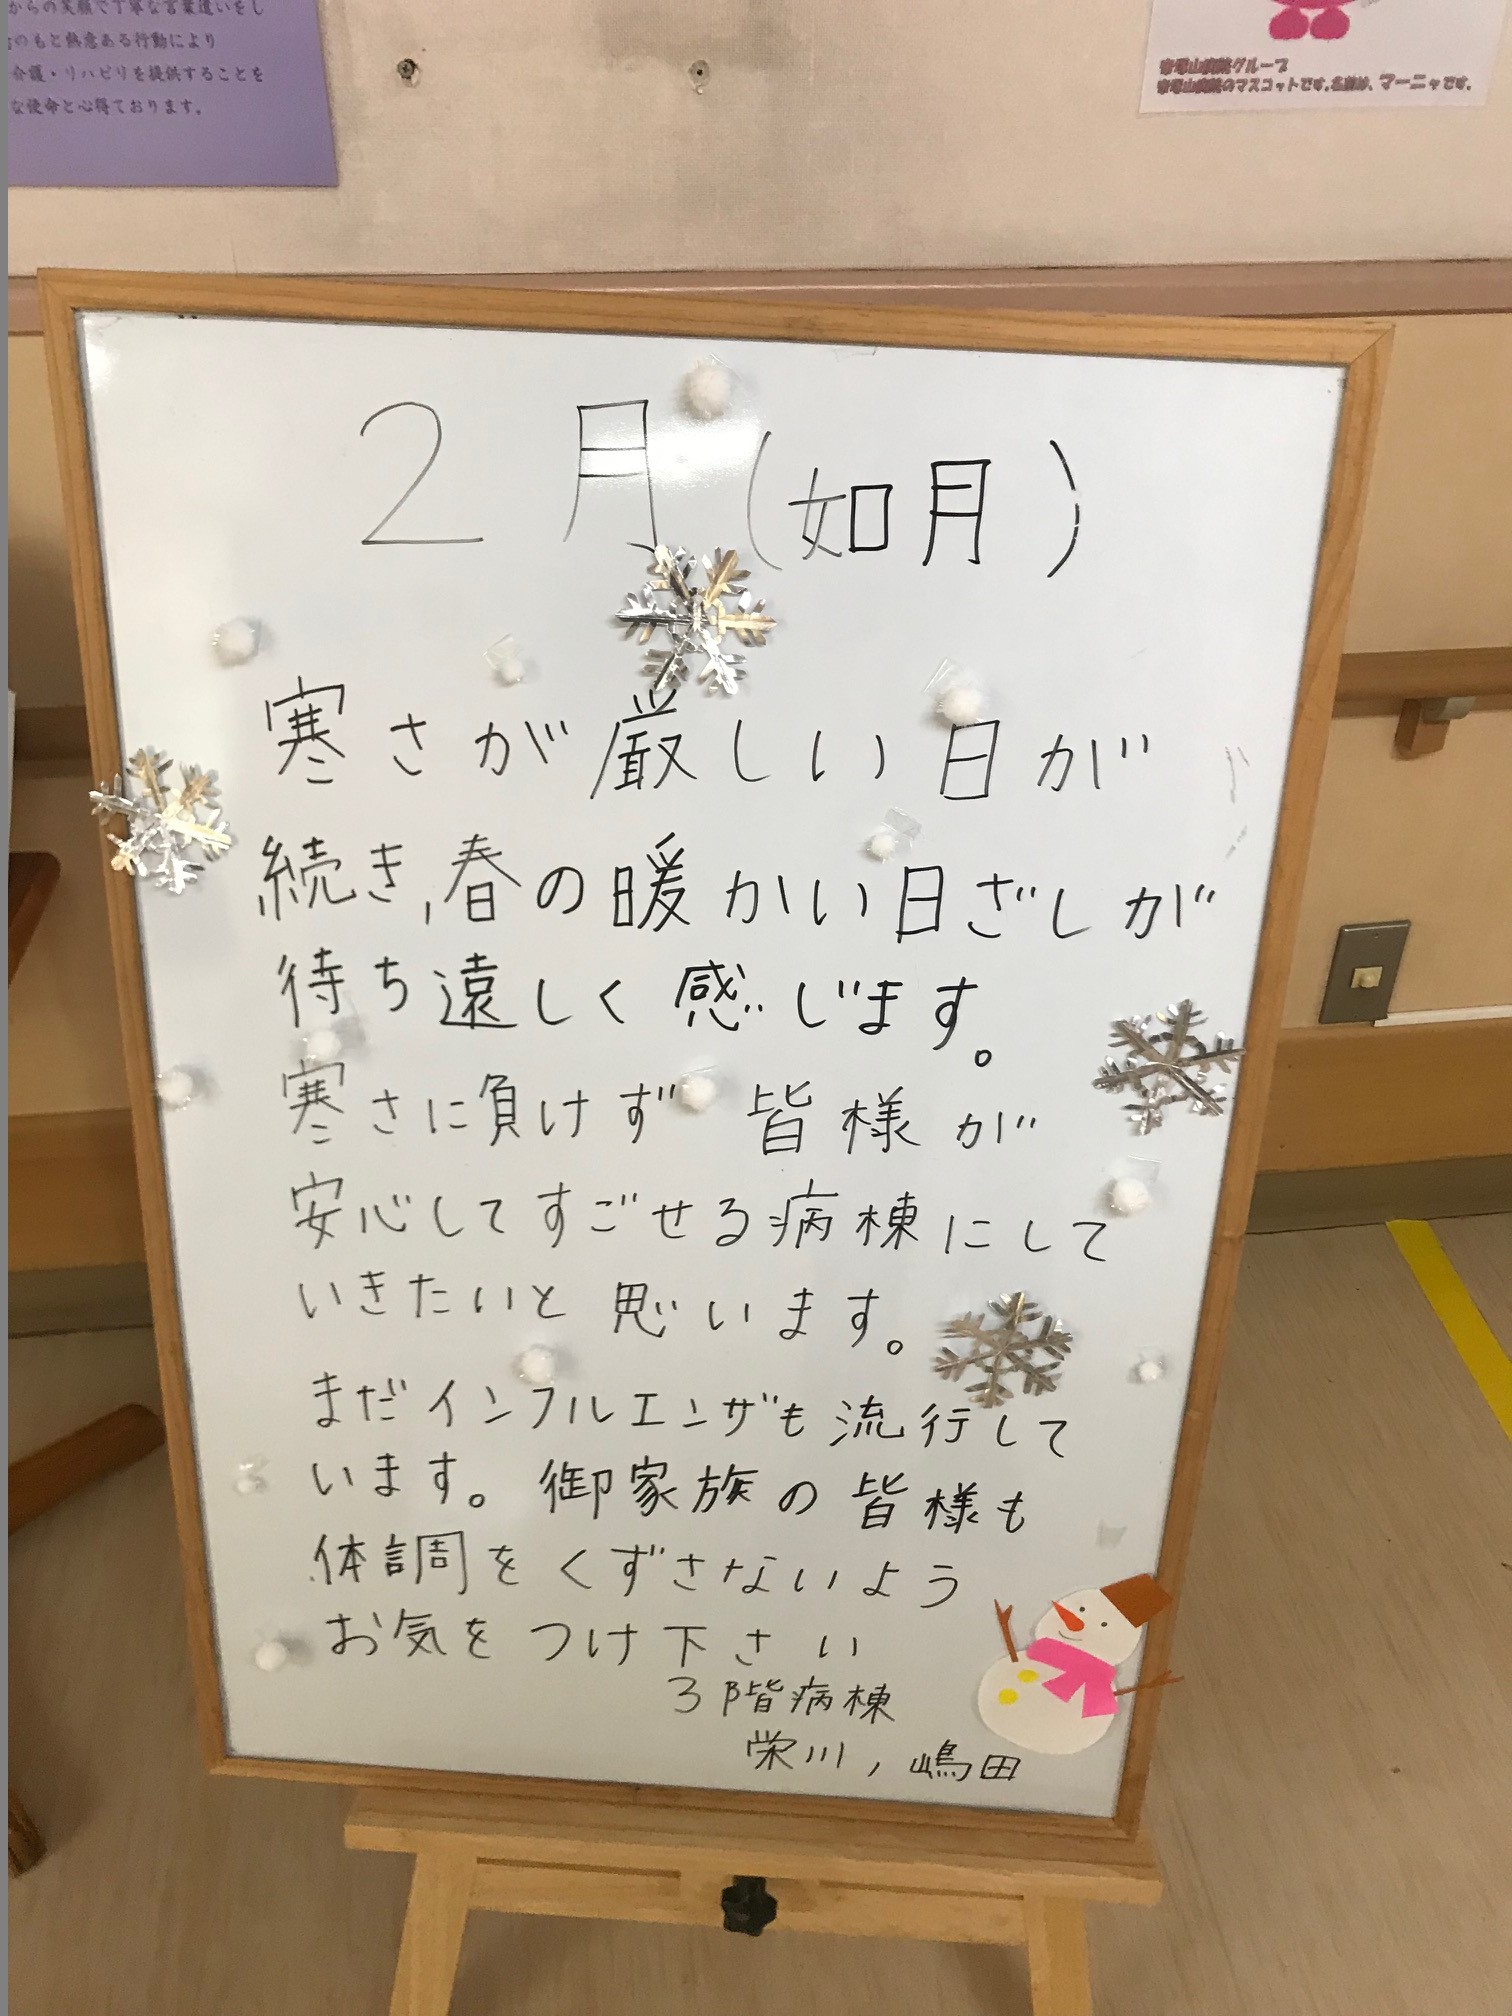 からの笑顔で丁寧な言葉遣いをし
のもと熱意ある行動により
介護・リハビリを提供することを
な使命と心得ております。
帝塚山病院グループ
帝塚山病院のマスコットです。名前は、マーニャです。
2月(如月)
寒さが厳しい日が
続き、春の暖かい日ざしが
待ち遠しく感じます。
寒さに負けず皆様が
安心してすごせる病棟にして
いきたいと思います。
まだインフルエンザも流行して
います。御家族の皆様も
体調をくずさないよう
お気をつけ下さい
3階病棟
栄川、嶋田